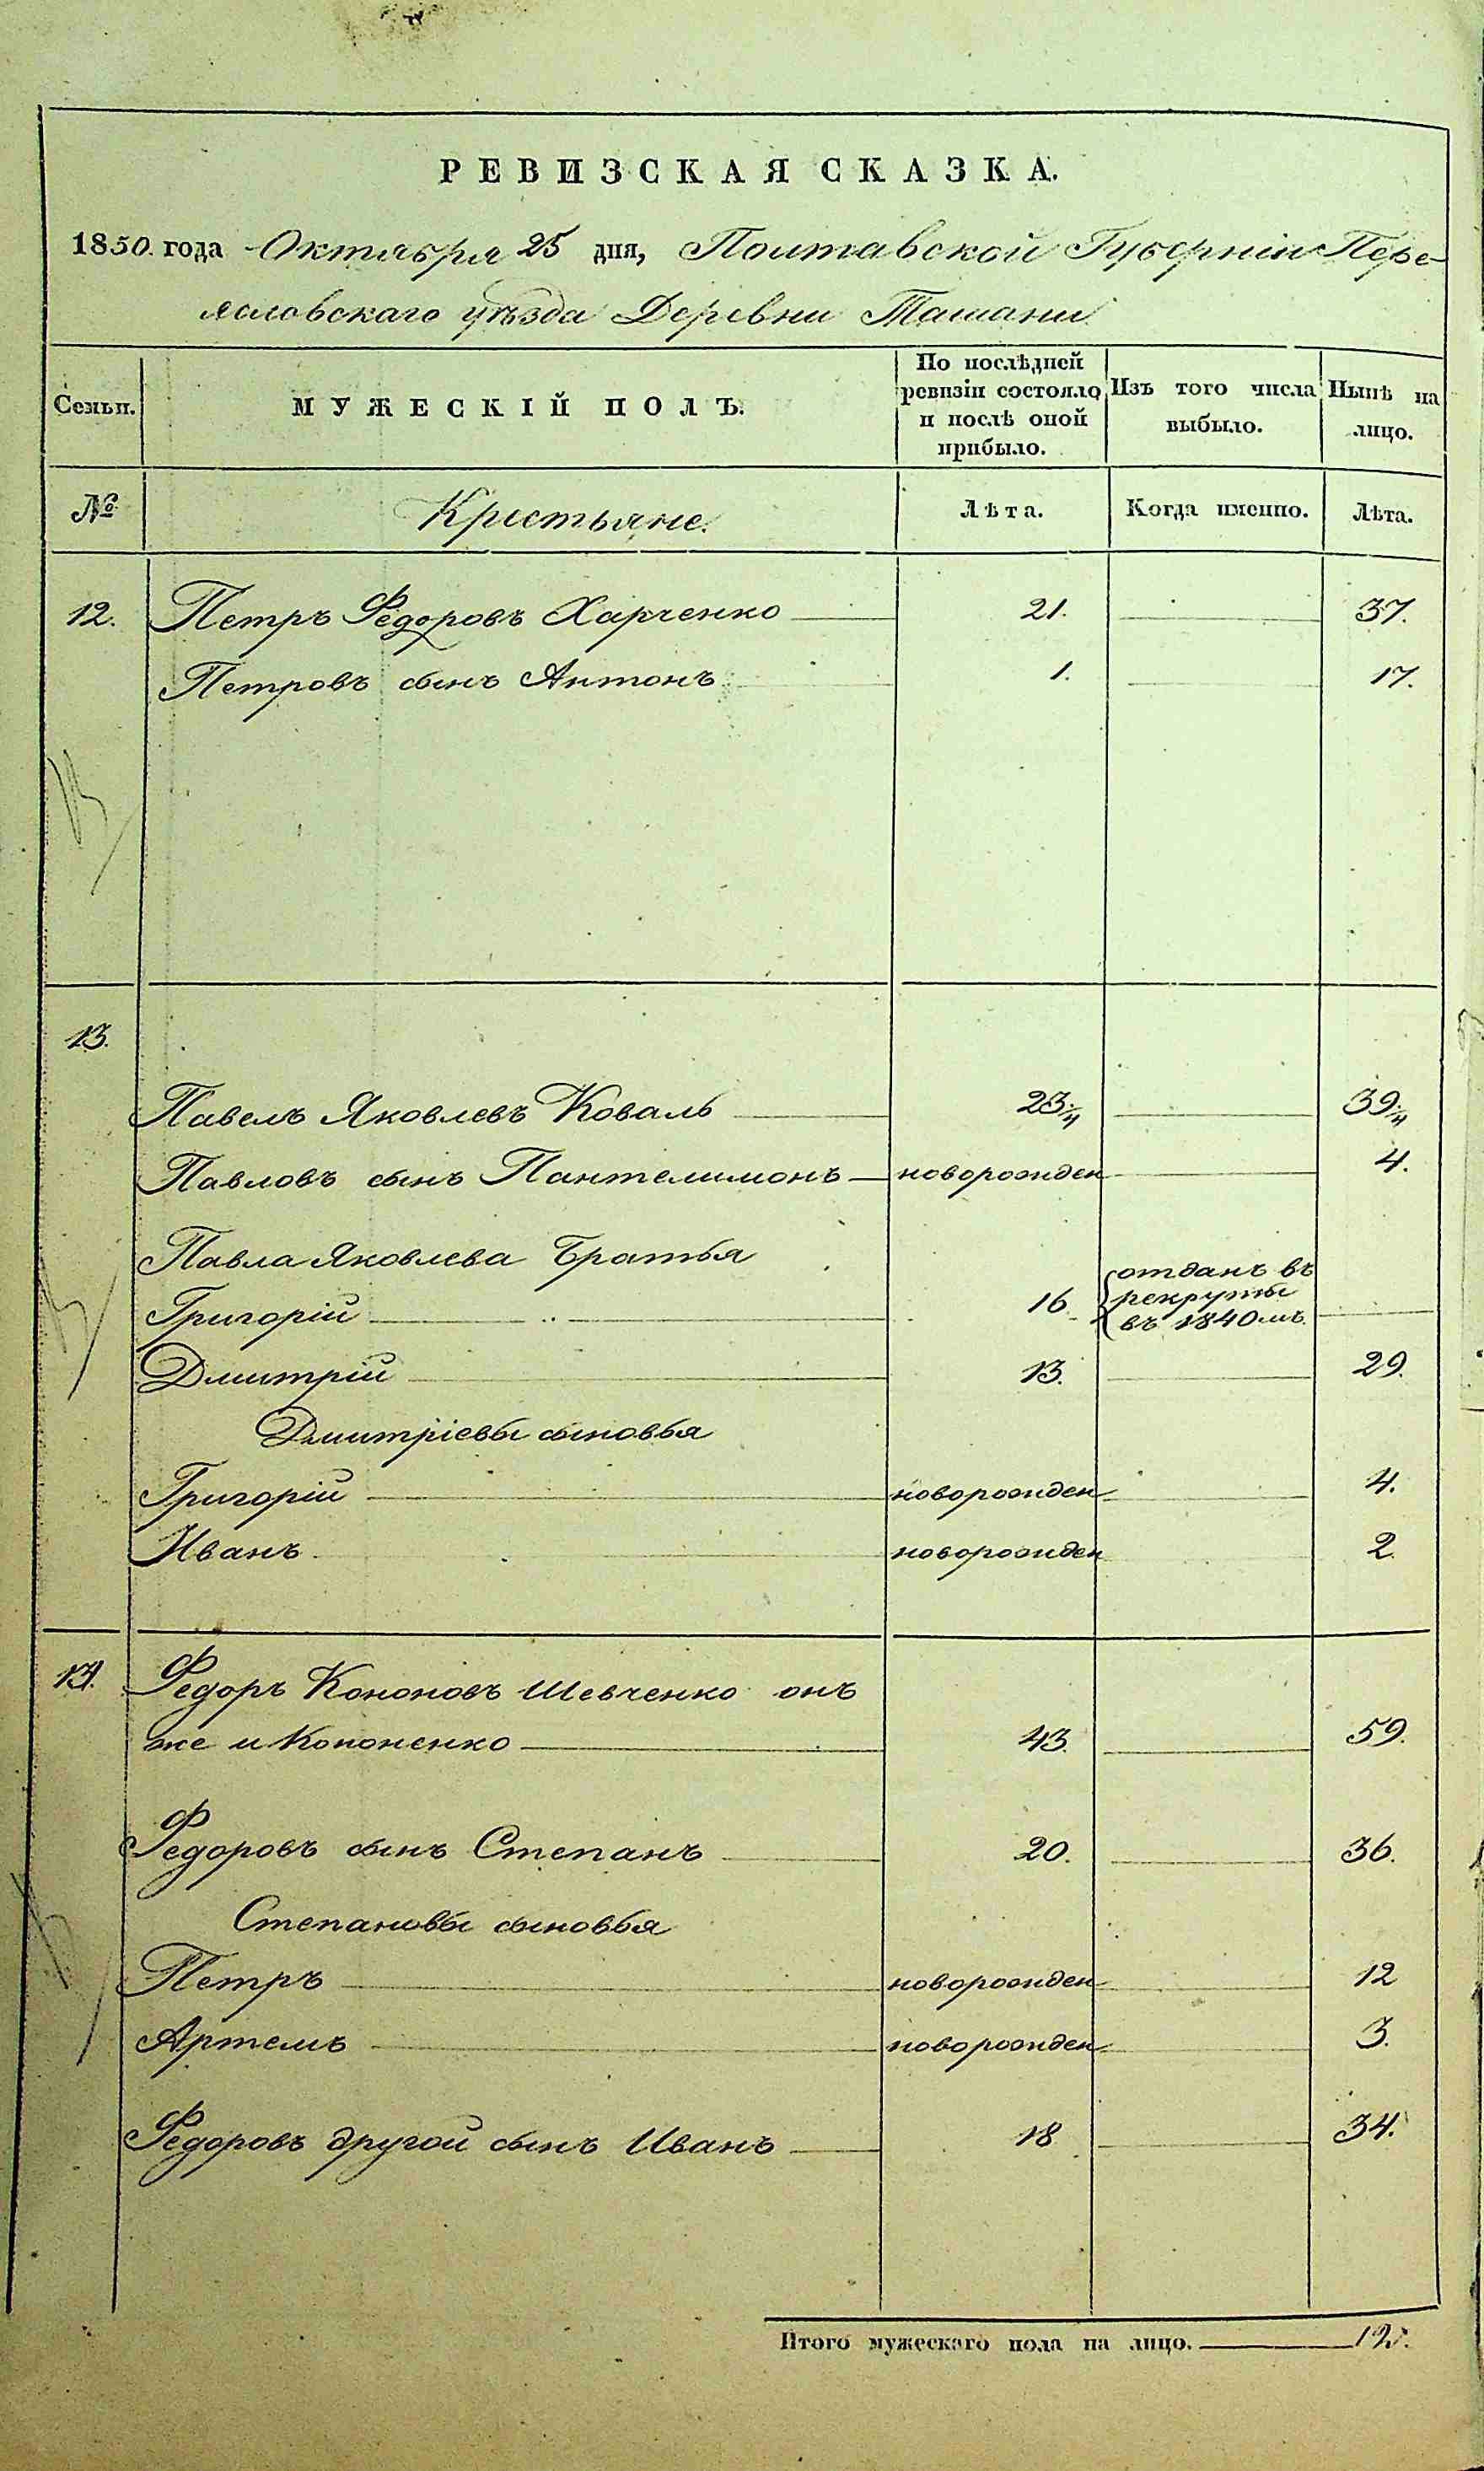 РЕВИЗСКАЯ СКАЗКА.
1850. года Октября 25 дня, Полтавской Губерніи Пере-
яславского уѣзда Деревни Ташани
Семьи. МУЖЕСКІЙ ПОЛЪ. По послѣдней ревизіи состояло и послѣ оной прибыло. Изъ того числа выбыло. Нынѣ на лицо.
№ Крестьяне. Лѣта. Когда именно. Лѣта.
12. Петръ Федоровъ Харченко 21. 37.
Петровъ сынъ Антонъ 1. 17.
13.
Павелъ Яковлевъ Коваль 23¼ 39¼
Павловъ сынъ Пантелимонъ новорожден 4.
Павла Яковлева Братья
Григорій 16. отданъ въ рекруты въ 1840мъ
Дмитрій 13. 29.
Дмитріевы сыновья
Григорій новорожден 4.
Иванъ новорожден 2.
14. Федоръ Кононовъ Шевченко онъ
же и Кононенко 43. 59.
Федоровъ сынъ Степанъ 20. 36.
Степановы сыновья
Петръ новорожден 12
Артемъ новорожден 3.
Федоровъ другой сынъ Иванъ 18 34.
Итого мужескаго пола на лицо.